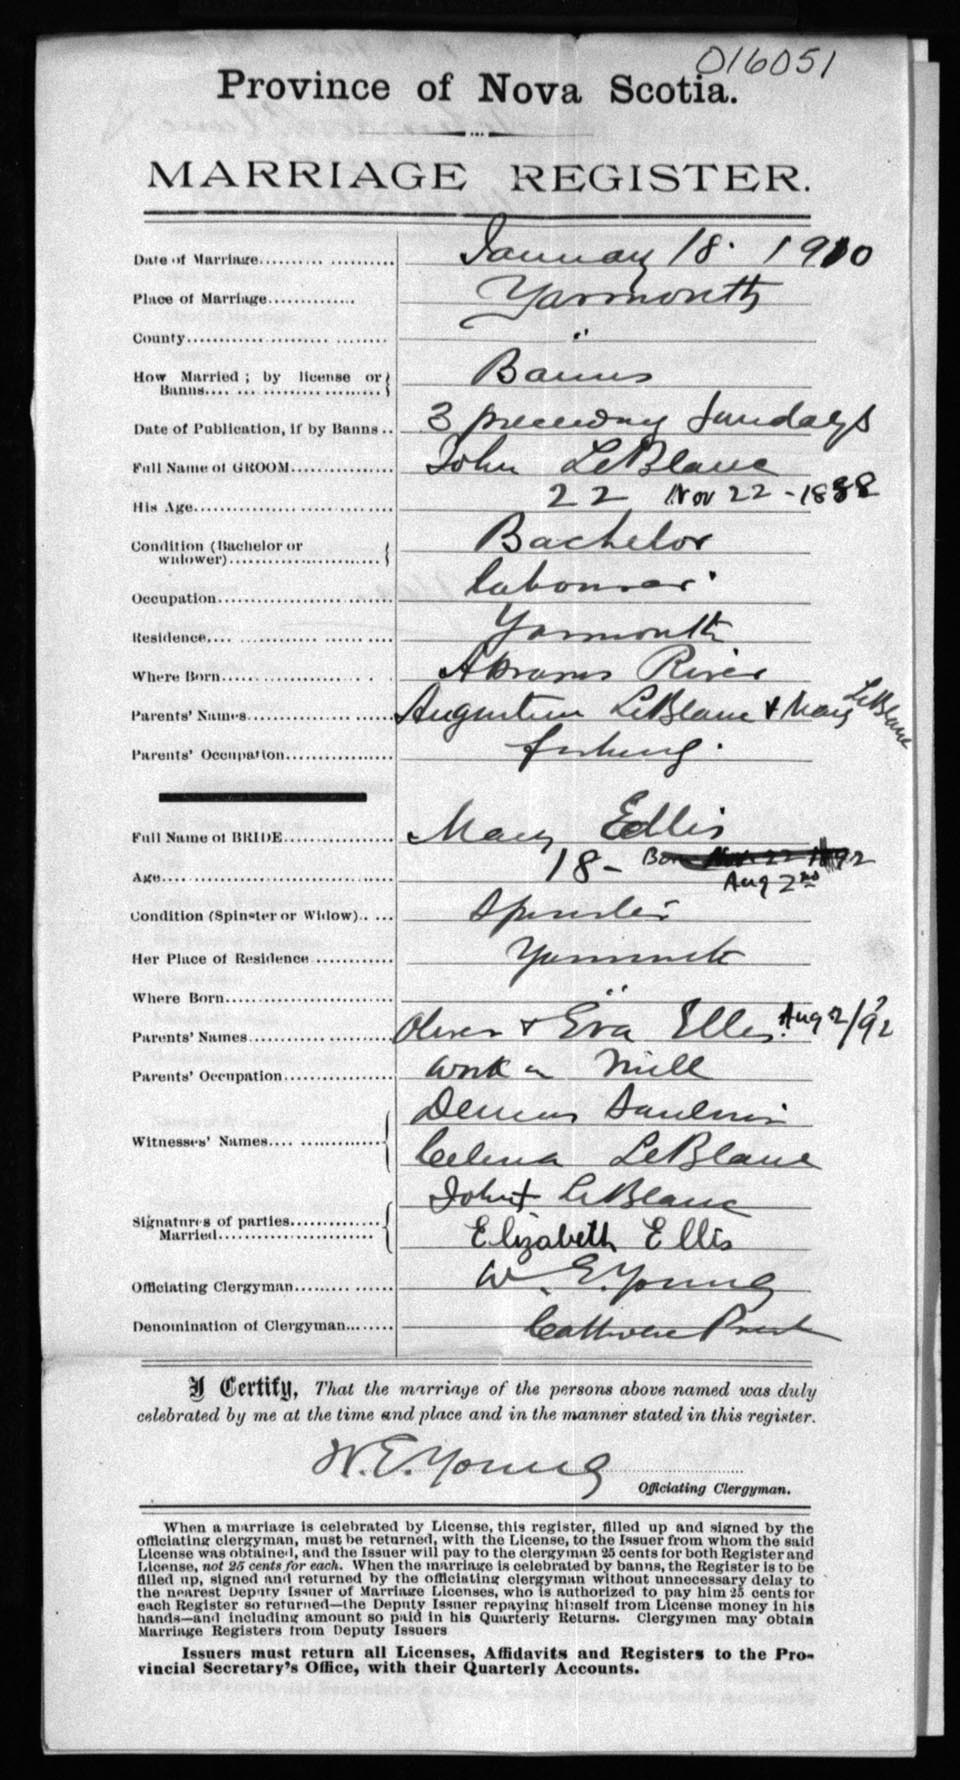 016051
Province of Nova Scotia.
MARRIAGE REGISTER.
Date of Marriage.......... .......... January 18. 1910
Place of Marriage.............. Yarmouth
County..................... ........ "
How Married ; by license or Banns.... ... ................. } Banns
Date of Publication, if by Banns .. 3 preceding Sundays
Full Name of GROOM................ John LeBlanc
His Age........................ ........ 22 Nov 22 - 1888
Condition (Bachelor or widower)....................... } Bachelor
Occupation........................ ........ Labourer
Residence.... .............. ..... ..... Yarmouth
Where Born.................... . . . Abrams River
Parents' Names................. ........ Augustin LeBlanc & Mary LeBlanc
Parents' Occupation................. fishing.
Full Name of BRIDE................ Mary Ellis
Age.................................... 18 - Born Nov. 22 1892
Aug 2nd
Condition (Spinster or Widow).. .... Spinster
Her Place of Residence ............ Yarmouth
Where Born......................... "
Parents' Names.............. ........ Oliver & Eva Ellis. Aug 2/92
Parents' Occupation................ work in mill
Witnesses' Names.... ............. { Saulnier
Celena LeBlanc
Signatures of parties.............. Married......................... { John + LeBlanc
Elizabeth Ellis
Officiating Clergyman......... ...... W. E. Young
Denomination of Clergyman........ Catholic Priest
I Certify, That the marriage of the persons above named was duly
celebrated by me at the time and place and in the manner stated in this register.
W. E. Young
Officiating Clergyman.
When a marriage is celebrated by License, this register, filled up and signed by the
officiating clergyman, must be returned, with the License, to the Issuer from whom the said
License was obtained, and the Issuer will pay to the clergyman 25 cents for both Register and
License, not 25 cents for each. When the marriage is celebrated by banns, the Register is to be
filled up, signed and returned by the officiating clergyman without unnecessary delay to
the nearest Deputy Issuer of Marriage Licenses, who is authorized to pay him 25 cents for
each Register so returned—the Deputy Issuer repaying himself from License money in his
hands—and including amount so paid in his Quarterly Returns. Clergymen may obtain
Marriage Registers from Deputy Issuers
Issuers must return all Licenses, Affidavits and Registers to the Pro-
vincial Secretary's Office, with their Quarterly Accounts.